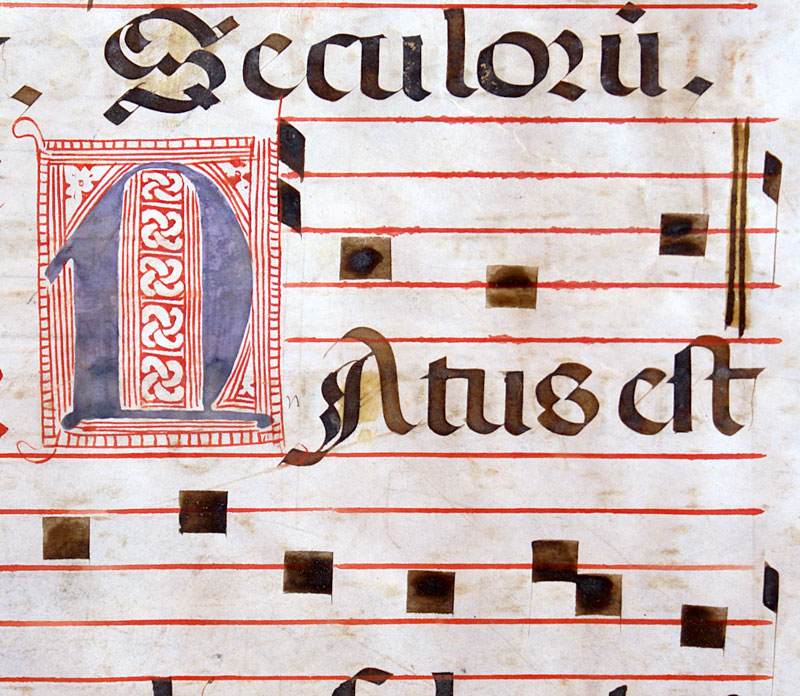 Seculorū.
NAtus est